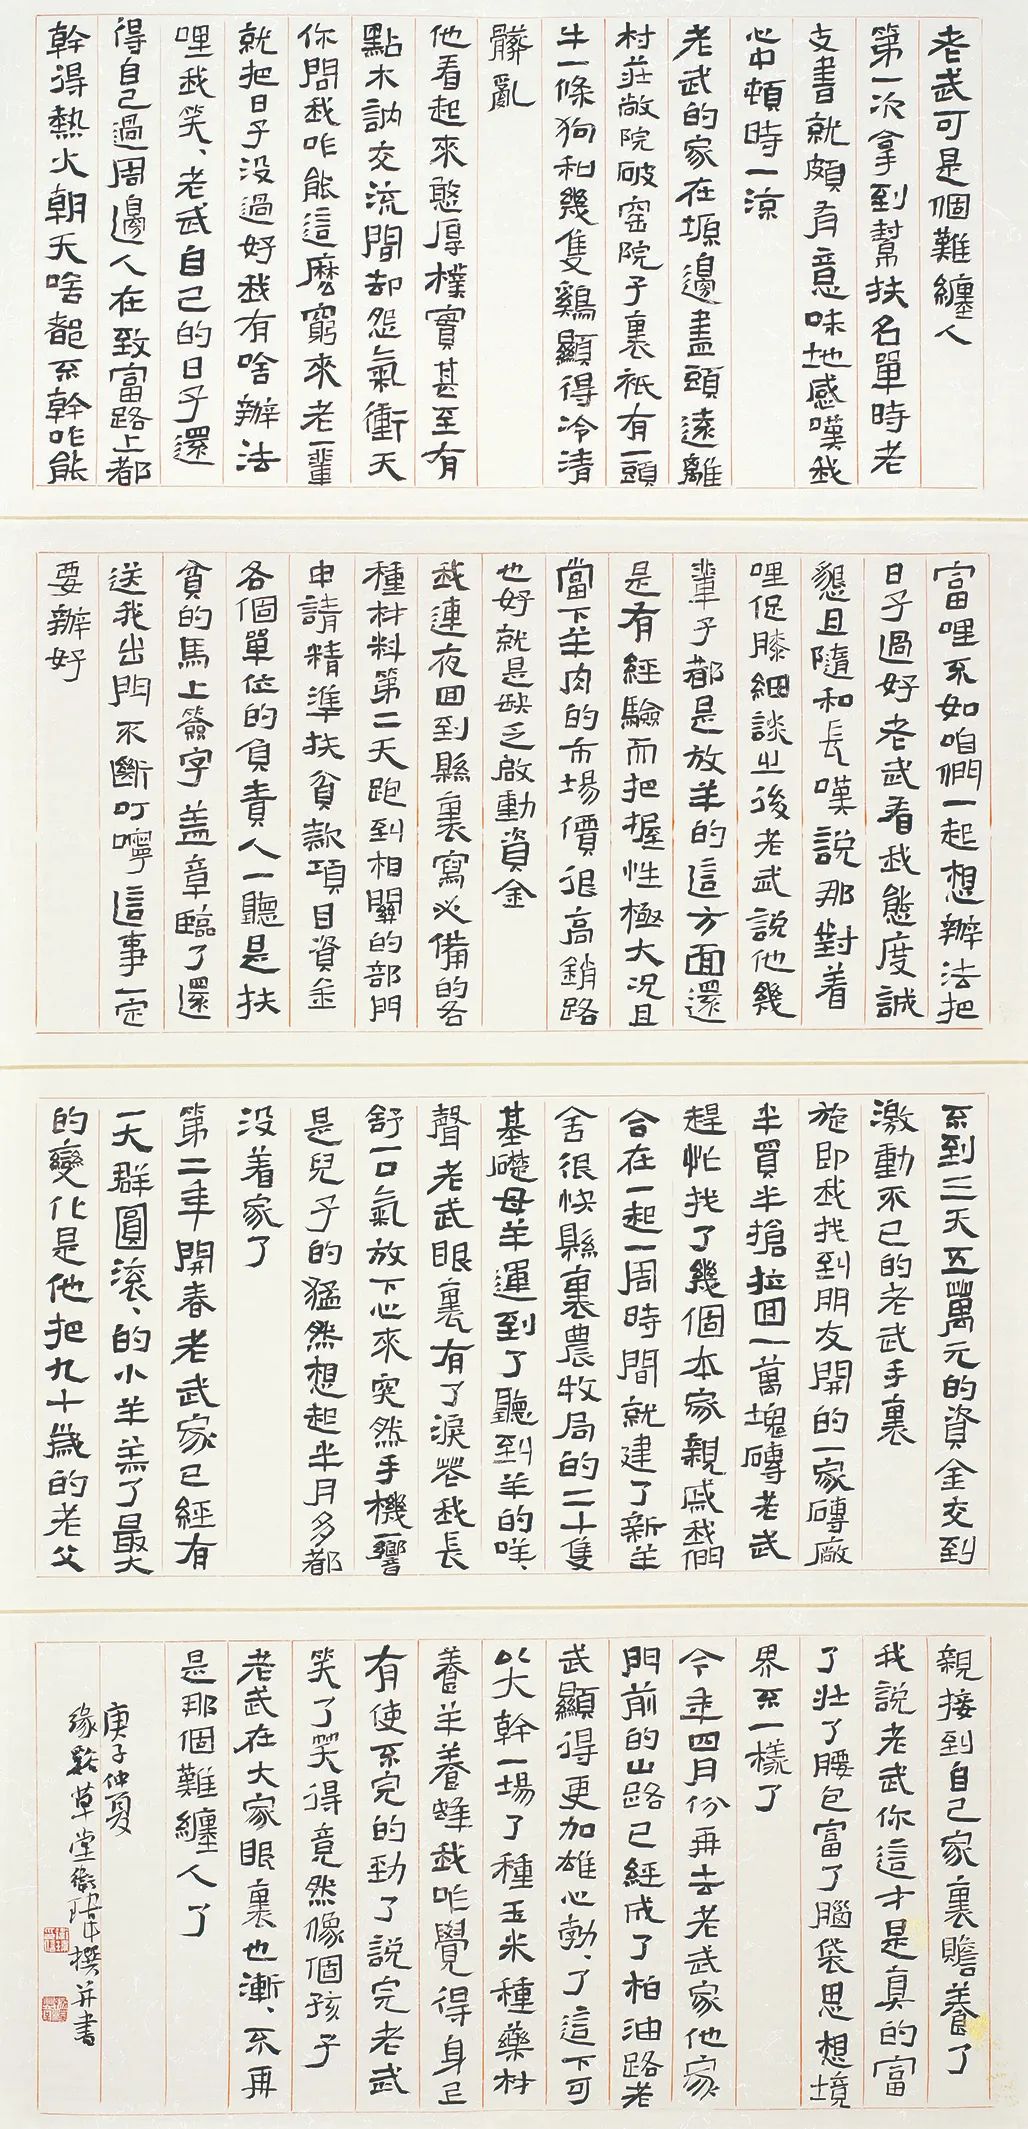 老武可是個難纏人
第一次拿到幫扶名單時老
支書就頗有意味地感嘆我
心中頓時一涼
老武的家在塬邊盡頭遠離
村莊敞院破窑院子裏衹有一頭
牛一條狗和幾隻鷄顯得冷清
髒亂
他看起來憨厚樸實甚至有
點木訥交流間却怨氣衝天
你問我咋能這麽窮來老一輩
就把日子没過好我有啥辦法
哩我笑、老武自己的日子還
得自己過周邊人在致富路上都
幹得熱火朝天啥都不幹咋能
富哩不如咱們一起想辦法把
日子過好老武看我態度誠
懇且隨和長嘆説那對着
哩促膝細談之後老武説他幾
輩子都是放羊的這方面還
是有經驗而把握性極大况且
當下羊肉的市場價很高銷路
也好就是缺乏啟動資金
我連夜回到縣裏寫必備的各
種材料第二天跑到相關的部門
申請精準扶貧款項目資金
各個單位的負責人一聽是扶
貧的馬上簽字盖章臨了還
送我出門不斷叮嚀這事一定
要辦好
不到三天五萬元的資金交到
激動不已的老武手裏
旋即我找到朋友開的一家磚廠
半買半搶拉回一萬塊磚老武
趕忙找了幾個本家親戚我們
合在一起一周時間就建了新羊
舍很快縣裏農牧局的二十隻
基礎母羊運到了聽到羊的咩、
聲老武眼裏有了淚花我長
舒一口氣放下心來突然手機響
是兒子的猛然想起半月多都
没着家了
第二年開春老武家已經有
一大群圓滚、的小羊羔了最大
的變化是他把九十歲的老父
親接到自己家裏贍養了
我説老武你這才是真的富
了壯了腰包富了腦袋思想境
界不一樣了
今年四月份再去老武家他家
門前的山路已經成了柏油路老
武顯得更加雄心勃、了這下可
以大幹一場了種玉米種藥材
養羊養蜂我咋覺得身上
有使不完的勁了説完老武
笑了笑得竟然像個孩子
老武在大家眼裏也漸、不再
是那個難纏人了
庚子仲夏
緣點草堂 撰并書